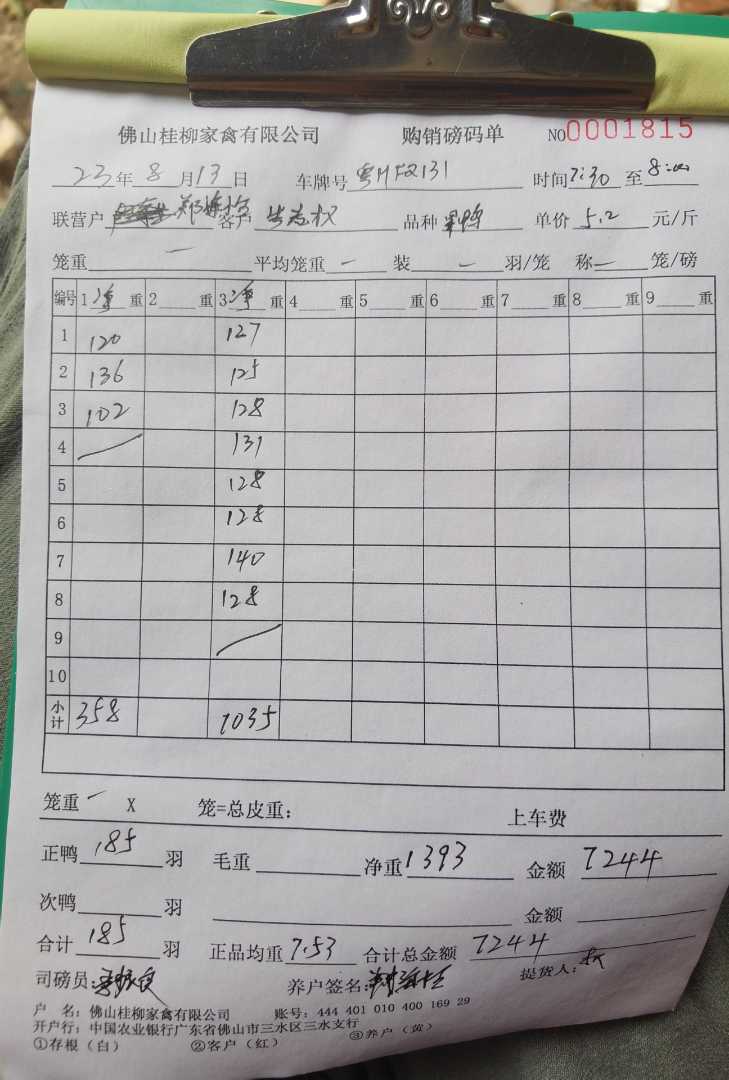 佛山桂柳家禽有限公司 购销磅码单 NO0001815
23年8月13日 车牌号 时间7:30至8:00
联营户 客户 品种 单价5.2元/斤
笼重 一 平均笼重 一 装 一 羽/笼 称 一 笼/磅
编号 1净重 2 重 3净重 4 重 5 重 6 重 7 重 8 重 9 重
1 120 127
2 136 125
3 102 128
4 131
5 128
6 128
7 140
8 128
9
10
小计 358 1035
笼重 一 X 笼=总皮重: 上车费
正鸭185羽 毛重 净重1393 金额 7244
次鸭 羽 金额
合计185羽 正品均重7.53 合计总金额 7244
司磅员: 养户签名: 提货人:
户 名: 佛山桂柳家禽有限公司 账号: 444 401 010 400 169 29
开户行: 中国农业银行广东省佛山市三水区三水支行
①存根(白) ②客户(红) ③养户(黄)